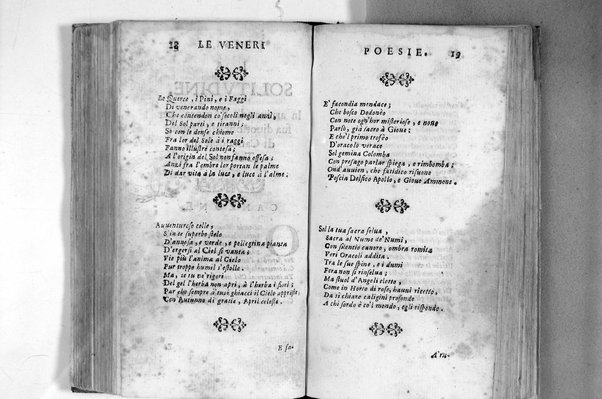 18 LE VENERI
Le Querce, i Pini, e i Faggi
Di venerando nome,
Che contendon co' secoli negli anni,
Del Sol parti, e tiranni,
So con le dense chiome
Fra lor del Sole à i raggi
Fanno illustri contesa;
A l'origin del Sol non fanno offesa;
Anzi fra l'ombra lor portan le palme
Di dar vita à la luce, e luce à l'alme.
Auuenturoso colle,
S'in te superbo stelo
D'annosa, e verde, e pellegrina pianta
D'ergersi al Ciel si vanta;
Vie più l'anima al Cielo
Pur troppo humil s'estolle.
Ma, se tu ne' rigori
Del gel l'herba non apri, à l'herba i fiori;
Pur che sempre à suoi ghiacci il Cielo apprista;
Con Autunno di gratie, April celeste.
E fa-
POESIE. 19
E' facondia mendace;
Che bosco Dodonèo
Con note ogn'hor misteriose, e noue
Parlò, già sacro à Gioue;
E che'l primo trofèo
D'oracolo verace
Sol gemina Colomba
Con presago parlar spiega, e rimbomba;
Ond'auuien, che fatidico risuone
Poscia Delfico Apollo, e Gioue Ammone.
Sol la tua sacra selua,
Sacra al Nume de' Numi,
Con silentio canoro, ombra romita
Veri Oracoli addita.
Tra le sue spine, e i dumi
Fera non si rinselua;
Ma stuol d'Angeli eletto,
Come in Horto di rose, hauui ricetto,
Da ti chiare caligini profonde
A chi sordo è co'l mondo, egli risponde.
A'tu-